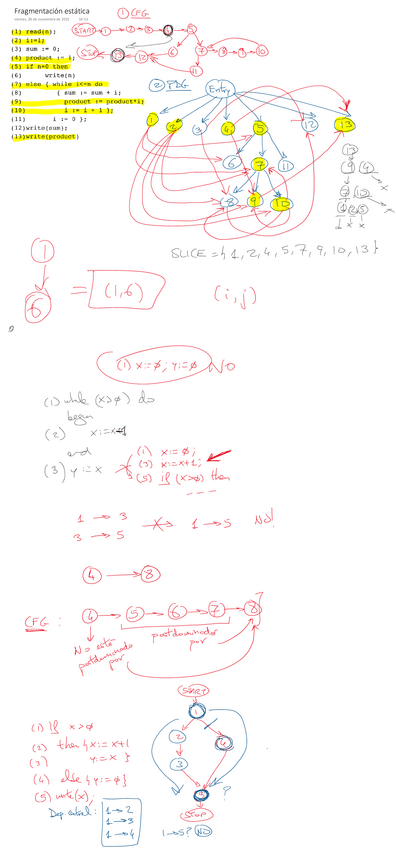 Fragmentación estática
(1) read(n);
(2) i:=1;
(3) sum := 0;
(4) product := 1;
(5) if n=0 then
(6) write(n)
(7) else { while i<=n do
(8) { sum := sum + i;
(9) product := product*i;
(10) i := i + 1 };
(11) i := 0 };
(12)write(sum);
(13)write(product)
① CFG
START 1 2 3 5
STOP 12 6 7 8 9 10
11
② PDG
Entry
1 2 3 4 5 12 13
6 7 11
8 9 10
SLICE = { 1, 2, 4, 5, 7, 9, 10, 13 }
1
6
= (1,6) (i,j)
(1) x:=0; y:=0 NO
(1) while (x>0) do
begin
(2) x:=x+1
end
(3) y:=x
(1) x:=0;
(3) x:=x+1;
(5) if (x>0) then
- - -
1 → 3
3 → 5
1 → 5 NO!
4 → 8
CFG :
4 → 5 → 6 → 7 → 8
postdominador
por
No está
postdominado
por
START
1
2 4
3
5
STOP
?
1→5? NO
(1) if x>0
(2) then { x:=x+1
(3) y:=x }
(4) else { y:=0 }
(5) write(x);
Dep. control:
1→2
1→3
1→4